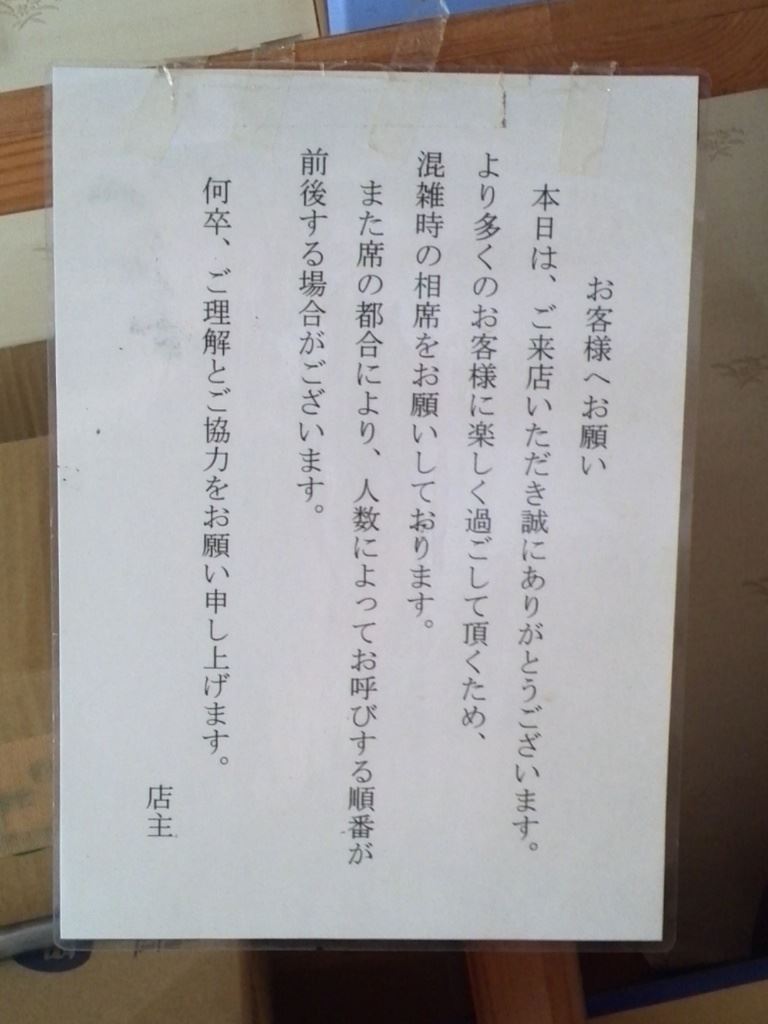 お客様へお願い
本日は、ご来店いただき誠にありがとうございます。
より多くのお客様に楽しく過ごして頂くため、
混雑時の相席をお願いしております。
また席の都合により、人数によってお呼びする順番が
前後する場合がございます。
何卒、ご理解とご協力をお願い申し上げます。
店主